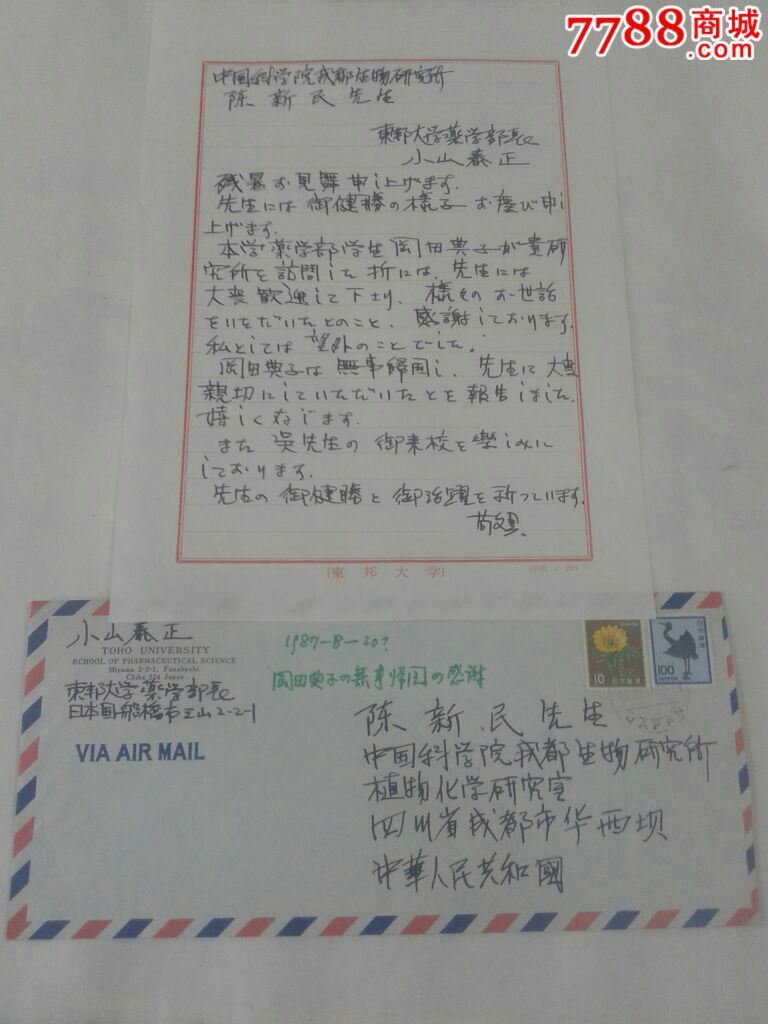 7788商城
.com
中国科学院成都生物研究所
陈新民先生
東邦大学薬学部長
小山泰正
残暑お見舞申し上げます.
先生には御健勝の様子お慶び申し
上げます.
本学薬学部学生岡田典子が貴研
究所を訪問した折には、先生には
大変歓迎して下さり、様々のお世話
をいただいたとのこと、感謝しております.
私としては望外のことでした.
岡田典子は無事帰国し、先生に大変
親切にしていただいたことを報告しました.
嬉しくなります.
また吴先生の御来校を楽しみに
しております.
先生の御健勝と御活躍を祈っています.
敬具
(東邦大学)
小山泰正
TOHO UNIVERSITY
SCHOOL OF PHARMACEUTICAL SCIENCE
Miyama 2-2-1, Funabashi,
Chiba 274 Japan
東邦大学薬学部長
日本国船橋市三山2-2-1
VIA AIR MAIL
1987-8-20?
岡田典子の無事帰国の感謝
10
日本郵便
100
日本郵便
JAPAN
陈新民先生
中国科学院成都生物研究所
植物化学研究室
四川省成都市华西坝
中華人民共和國